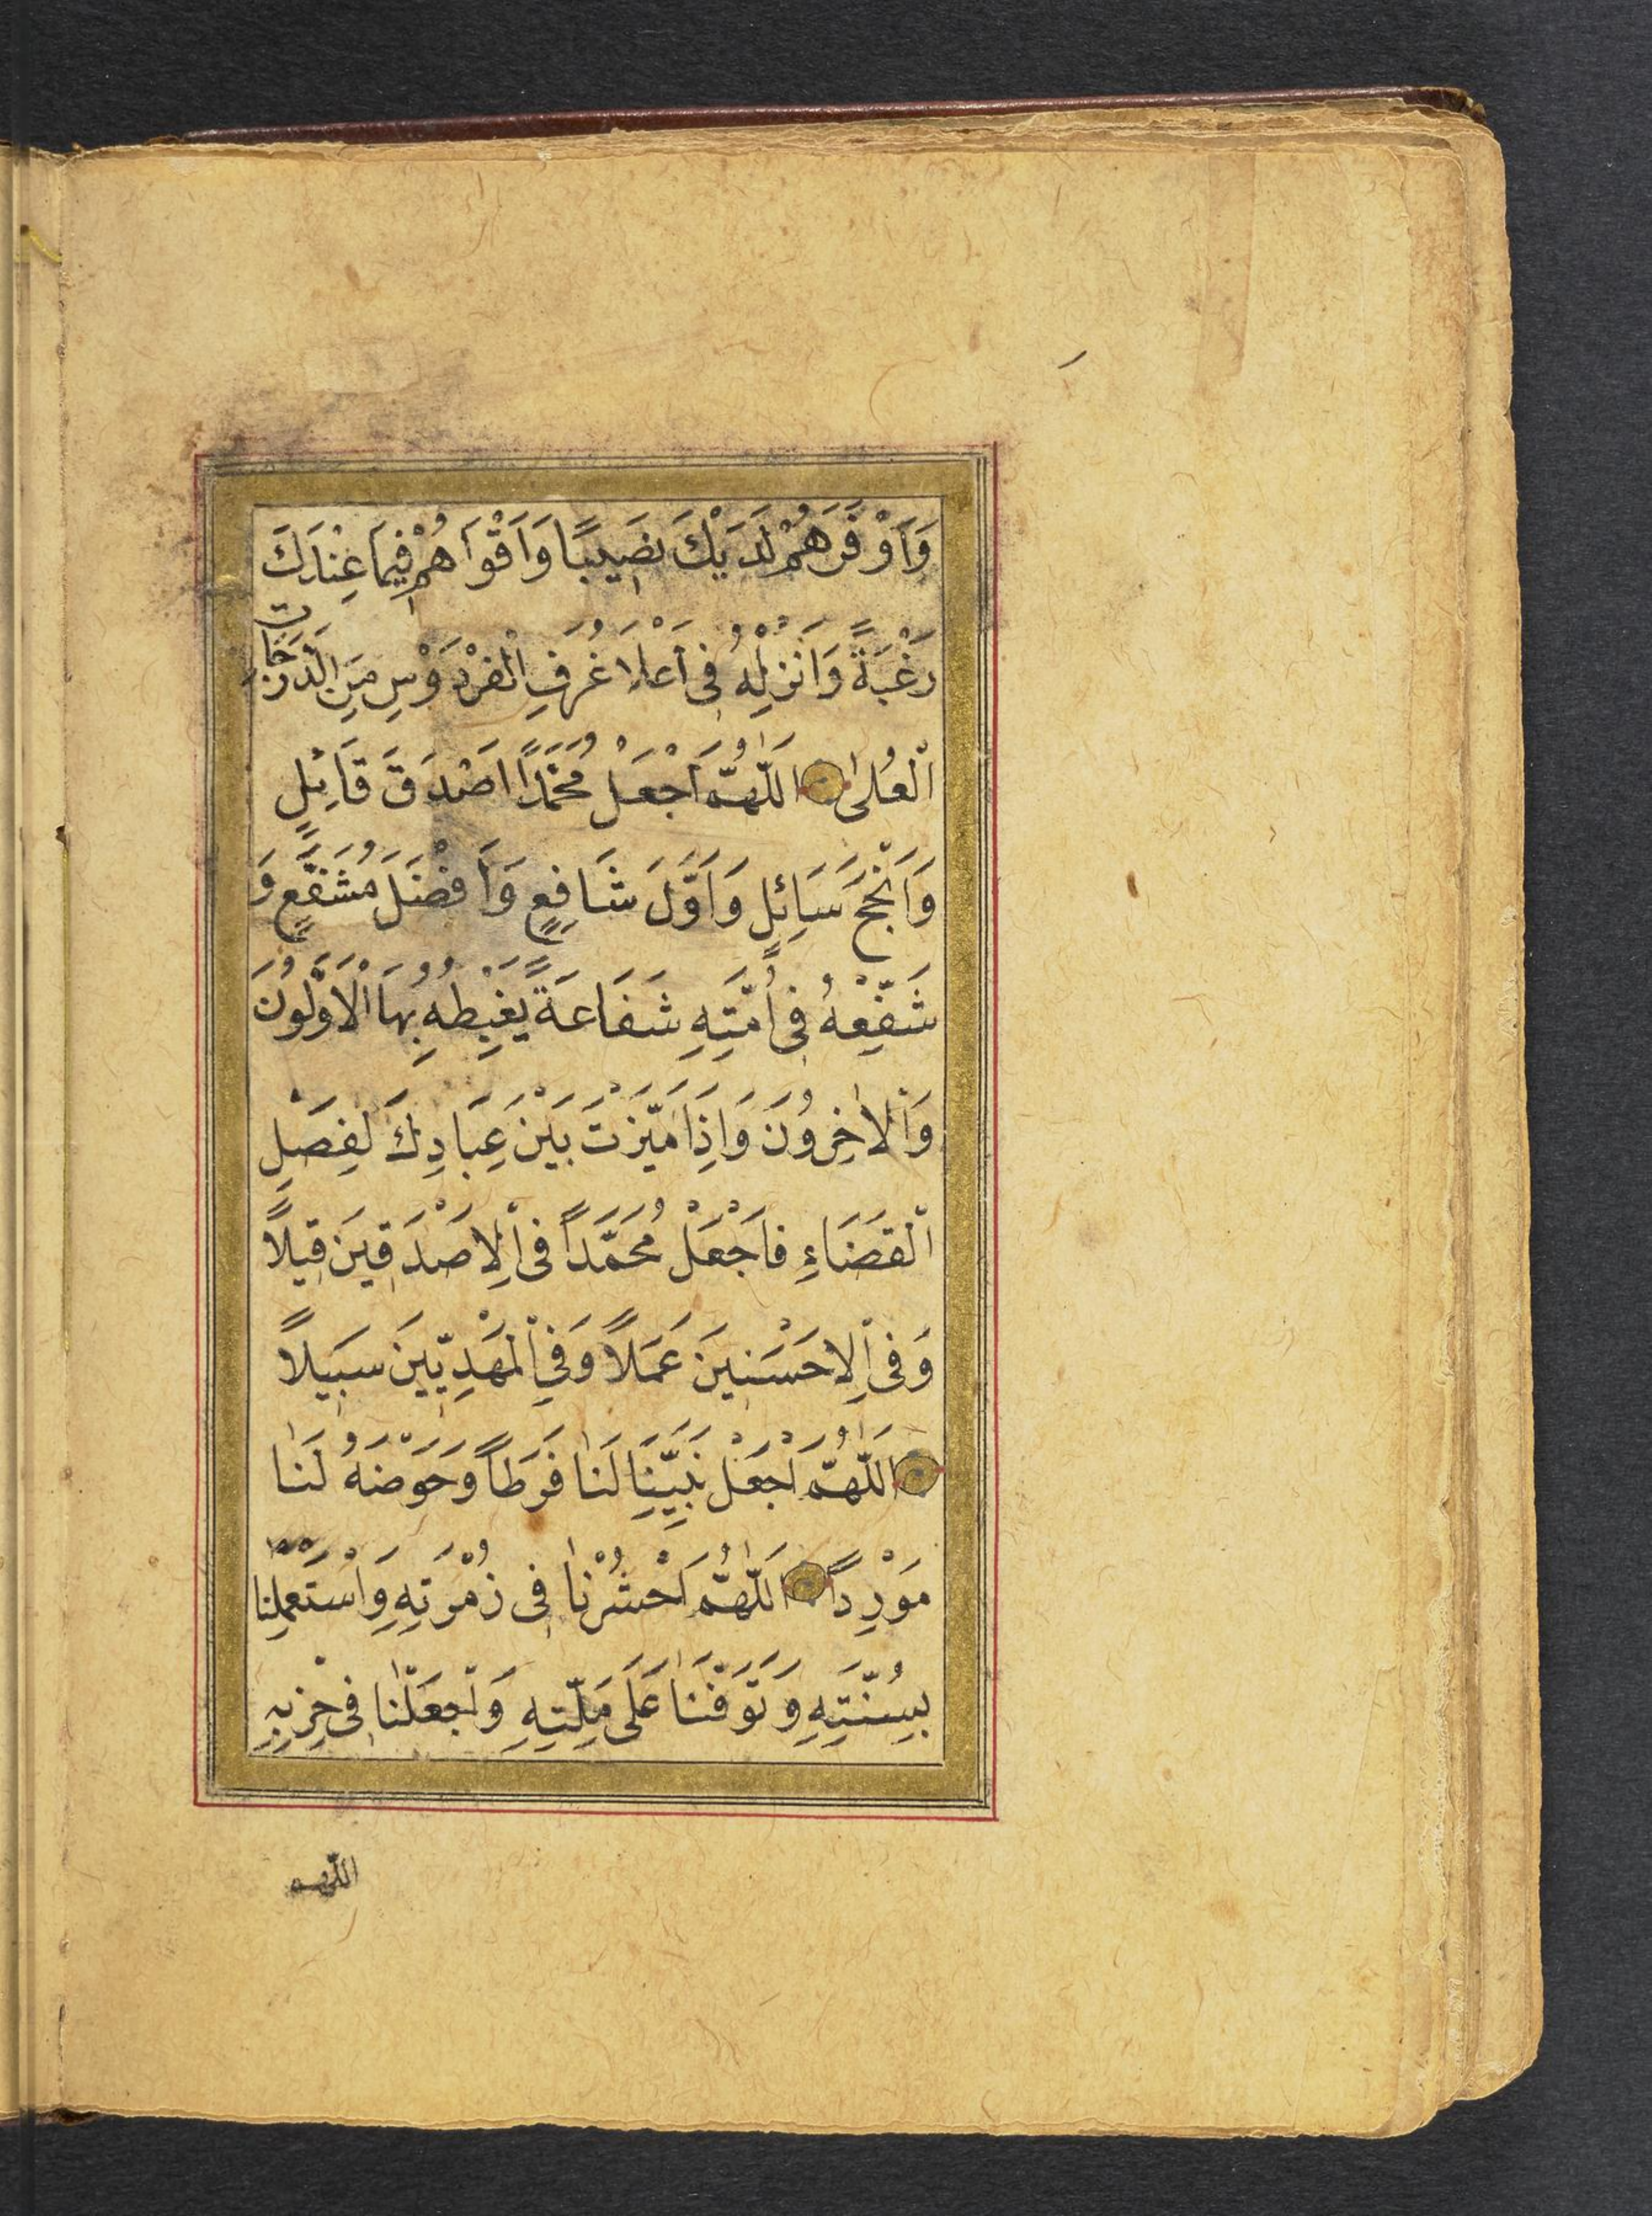 وَاَوْفَرَهُمْ لَدَيْكَ نَصِيبًا وَاَقْوَاهُمْ فِيمَا عِنْدَكَ
رَغْبَةً وَاَنْزِلْهُ فِى اَعْلَا غُرَفِ الْفِرْدَوْسِ مِنَ الدَّرَجَاتِ
الْعُلىٰ اَللّٰهُمَّ اَجْعَلْ مُحَمَّدًا اَصْدَقَ قَائِلٍ
وَاَنْجَحَ سَائِلٍ وَاَوَّلَ شَافِعٍ وَاَفْضَلَ مُشَفَّعٍ وَ
شَفِّعْهُ فِى اُمَّتِهِ شَفَاعَةً يَغْبِطُهُ بِهَا الْاَوَّلُونَ
وَالْاٰخِرُونَ وَاِذَا مَيَّزْتَ بَيْنَ عِبَادِكَ لِفَصْلِ
الْقَضَاءِ فَاَجْعَلْ مُحَمَّدًا فِى الْاَصْدَقِينَ قِيلاً
وَفِى الْاَحْسَنِينَ عَمَلاً وَفِى الْمَهْدِيِّينَ سَبِيلاً
اَللّٰهُمَّ اَجْعَلْ نَبِيَّنَا لَنَا فَرَطاً وَحَوْضَهُ لَنَا
مَوْرِداً اَللّٰهُمَّ اَحْشُرْنَا فِى زُمْرَتِهِ وَاسْتَعْمِلْنَا
بِسُنَّتِهِ وَتَوَفَّنَا عَلَى مِلَّتِهِ وَاجْعَلْنَا فِى حِزْبِهِ
اللّهم